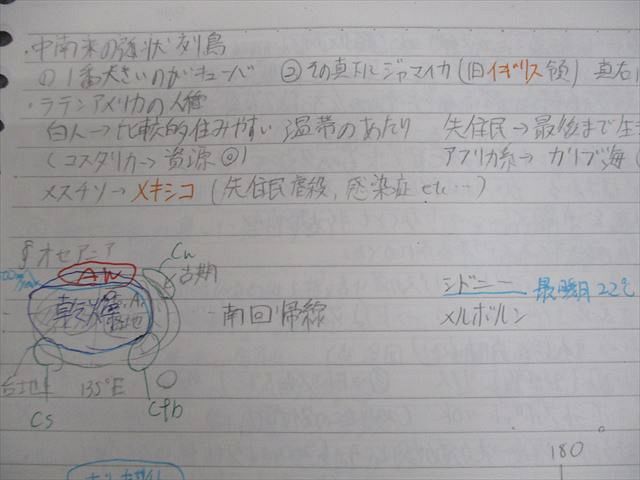 ・中南米の弧状列島
の1番大きいのがキューバ ②その真下にジャマイカ(旧イギリス領) 真右
・ラテンアメリカの人種
白人→比較的住みやすい温帯のあたり 先住民→最後まで生
(コスタリカ→資源◎) アフリカ系→カリブ海
メスチソ→メキシコ (先住民虐殺、感染症etc…)
§オセアニア
Aw
古期
乾燥
南回帰線
シドニー 最暖月22℃
メルボルン
台地
135°E
Cs
Cfb
180°